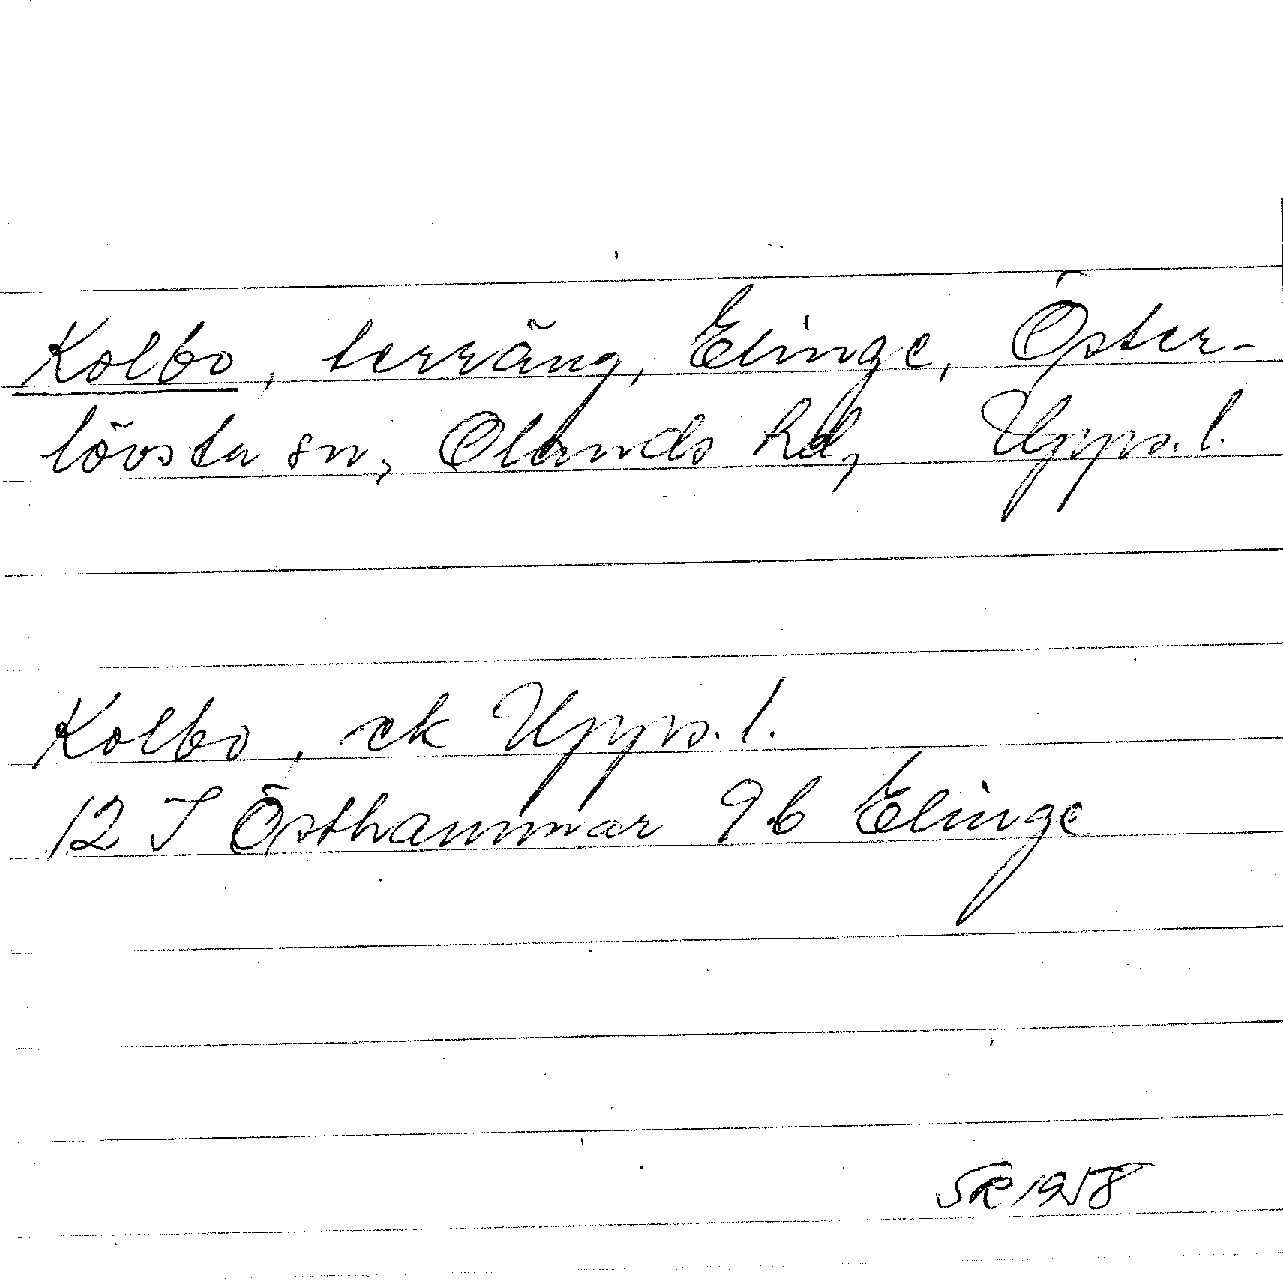 Kolbo, terräng, Elinge, Öster-
lövsta sn, Olands hd, Upps.l.
Kolbo, ek Upps.l.
12 I Östhammar 9b Elinge
SR 1958